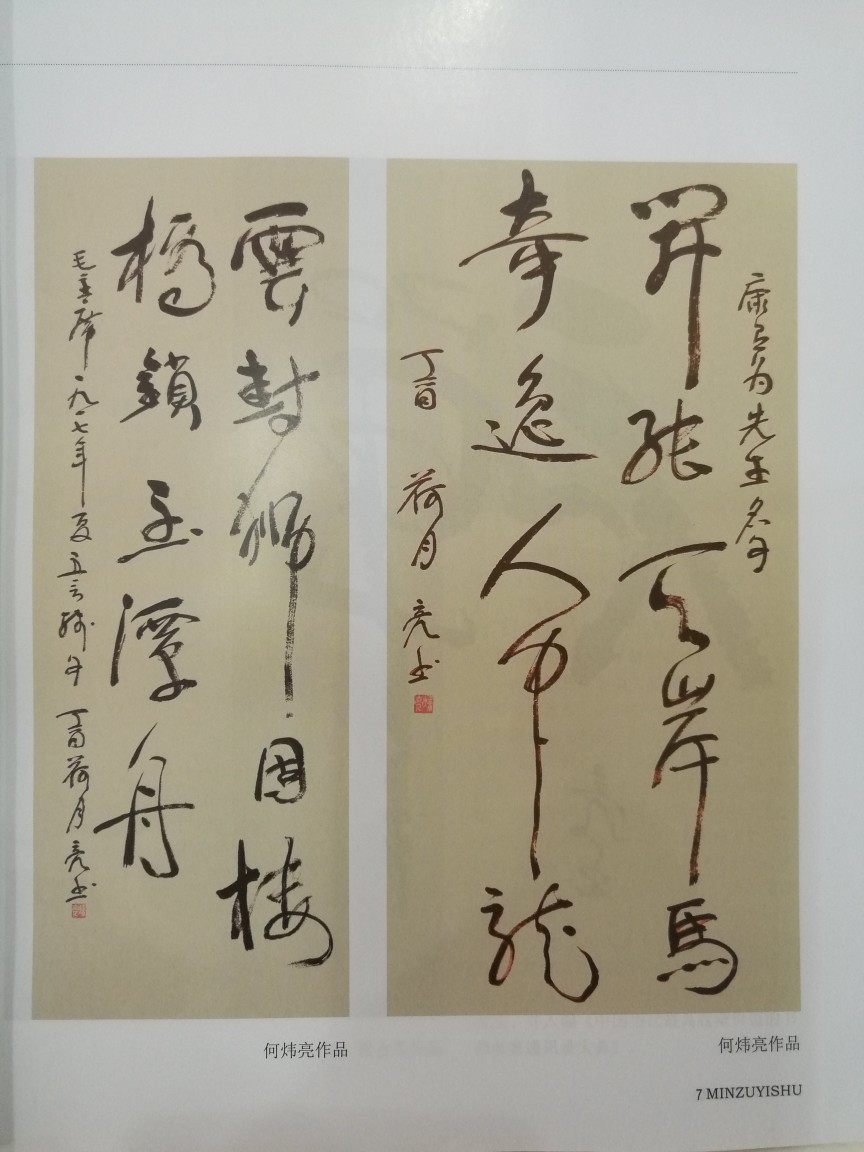 康有为先生名句
開张天岸馬
奇逸人中龍
丁酉 荷月 亮书
雲封狮固楼
橋鎖玉潭舟
毛主席一九一七年夏五言残句 丁酉荷月亮书
何炜亮作品
何炜亮作品
7 MINZUYISHU